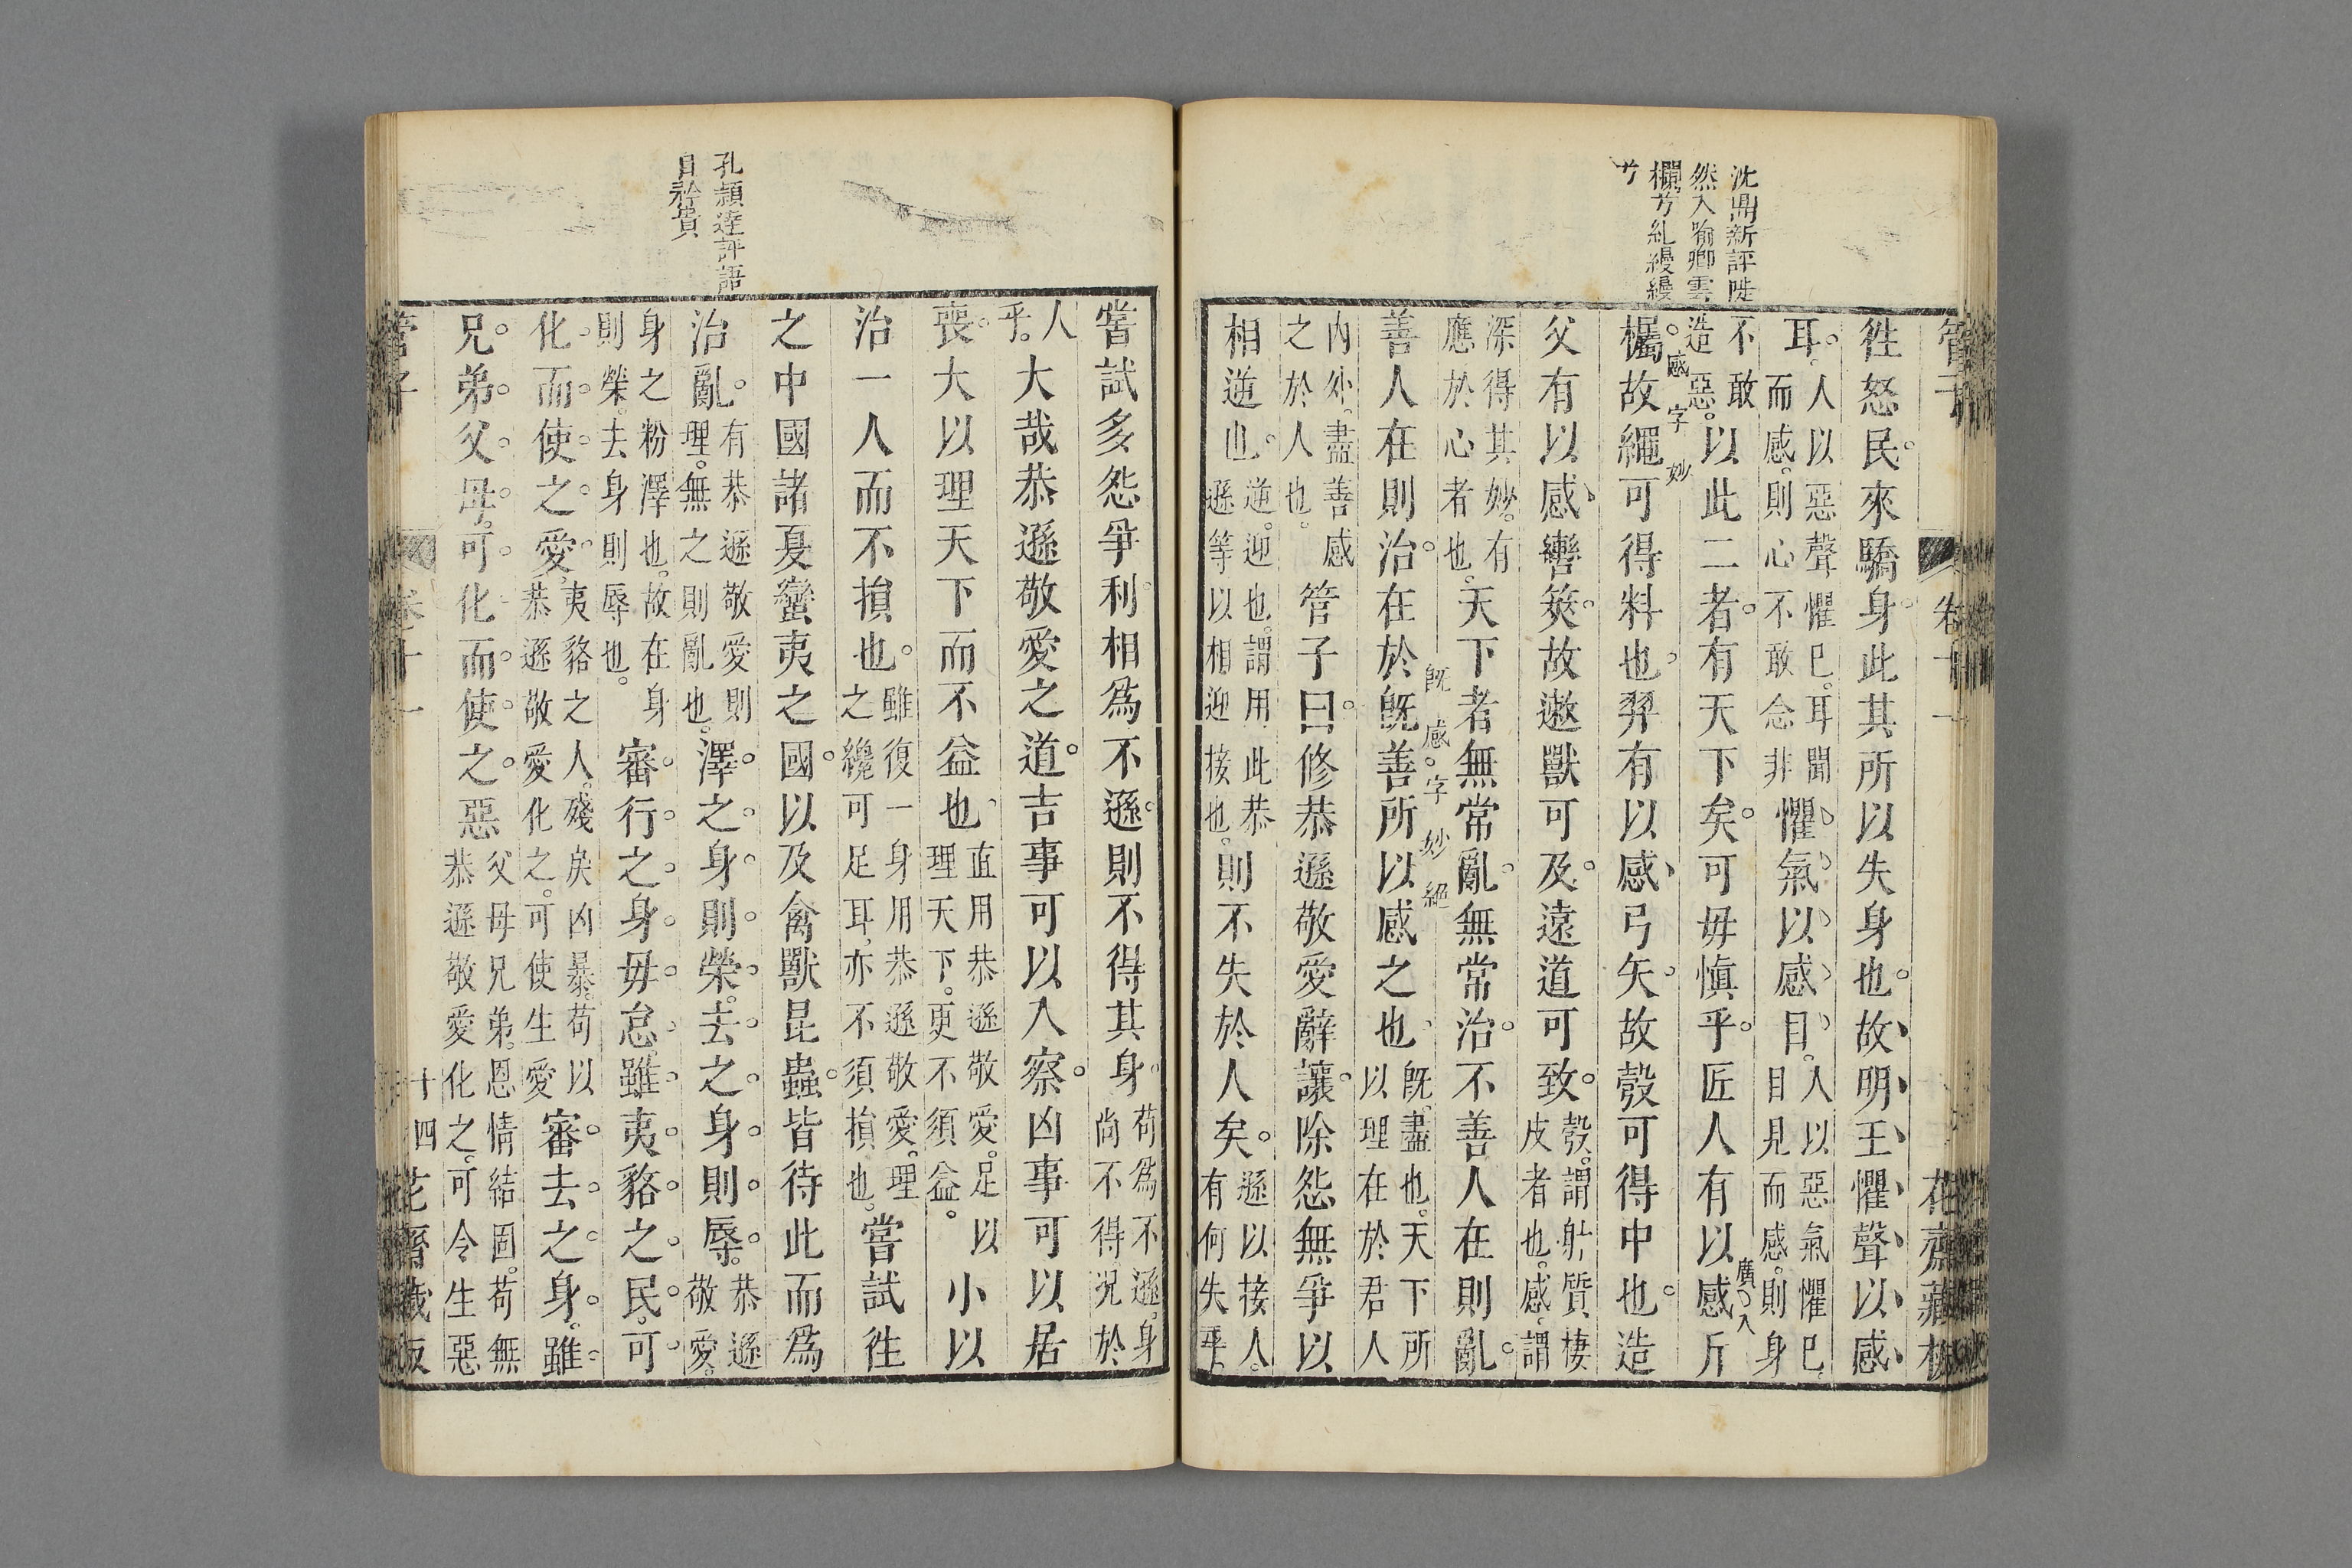 沈鼎新評陡
然入喻卿雲
欄兮糺縵縵
兮
管子 卷十一 花齋藏板
徃怒民來驕身此其所以失身也故明王懼聲以感
耳人以惡聲懼巳耳聞
而感則心不敢念非懼氣以感目人以惡氣懼巳
目見而感則身
不敢
造惡以此二者有天下矣可毋愼乎匠人有以感斤
廣入
欘故繩可得料也羿有以感弓矢故彀可得中也造
感字妙
父有以感轡筴故遬獸可及遠道可致彀謂射質棲
皮者也感謂
深得其妙有
應於心者也天下者無常亂無常治不善人在則亂
善人在則治在於旣善所以感之也旣盡也天下所
以理在於君人
旣感字妙絕
內外盡善感
之於人也管子曰修恭遜敬愛辭讓除怨無爭以
相逆也逆迎也謂用此恭
遜等以相迎接也則不失於人矣遜以接人
有何失乎
嘗試多怨爭利相爲不遜則不得其身苟爲不遜身
尚不得況於
人
乎大哉恭遜敬愛之道吉事可以入察凶事可以居
喪大以理天下而不益也直用恭遜敬愛足以
理天下更不須益小以
治一人而不損也雖復一身用恭遜敬愛理
之纔可足耳亦不須損也嘗試徃
之中國諸夏蠻夷之國以及禽獸昆蟲皆待此而爲
治亂有恭遜敬愛則
理無之則亂也澤之身則榮去之身則辱恭遜
敬愛
身之粉澤也故在身
則榮去身則辱也審行之身毋怠雖夷貉之民可
化而使之愛夷貉之人殘戾凶暴苟以
恭遜敬愛化之可使生愛審去之身雖
兄弟父母可化而使之惡父母兄弟恩情結固苟無
恭遜敬愛化之可令生惡
管子 卷十一 十四 花齋藏板
孔穎達評語
自矜貴